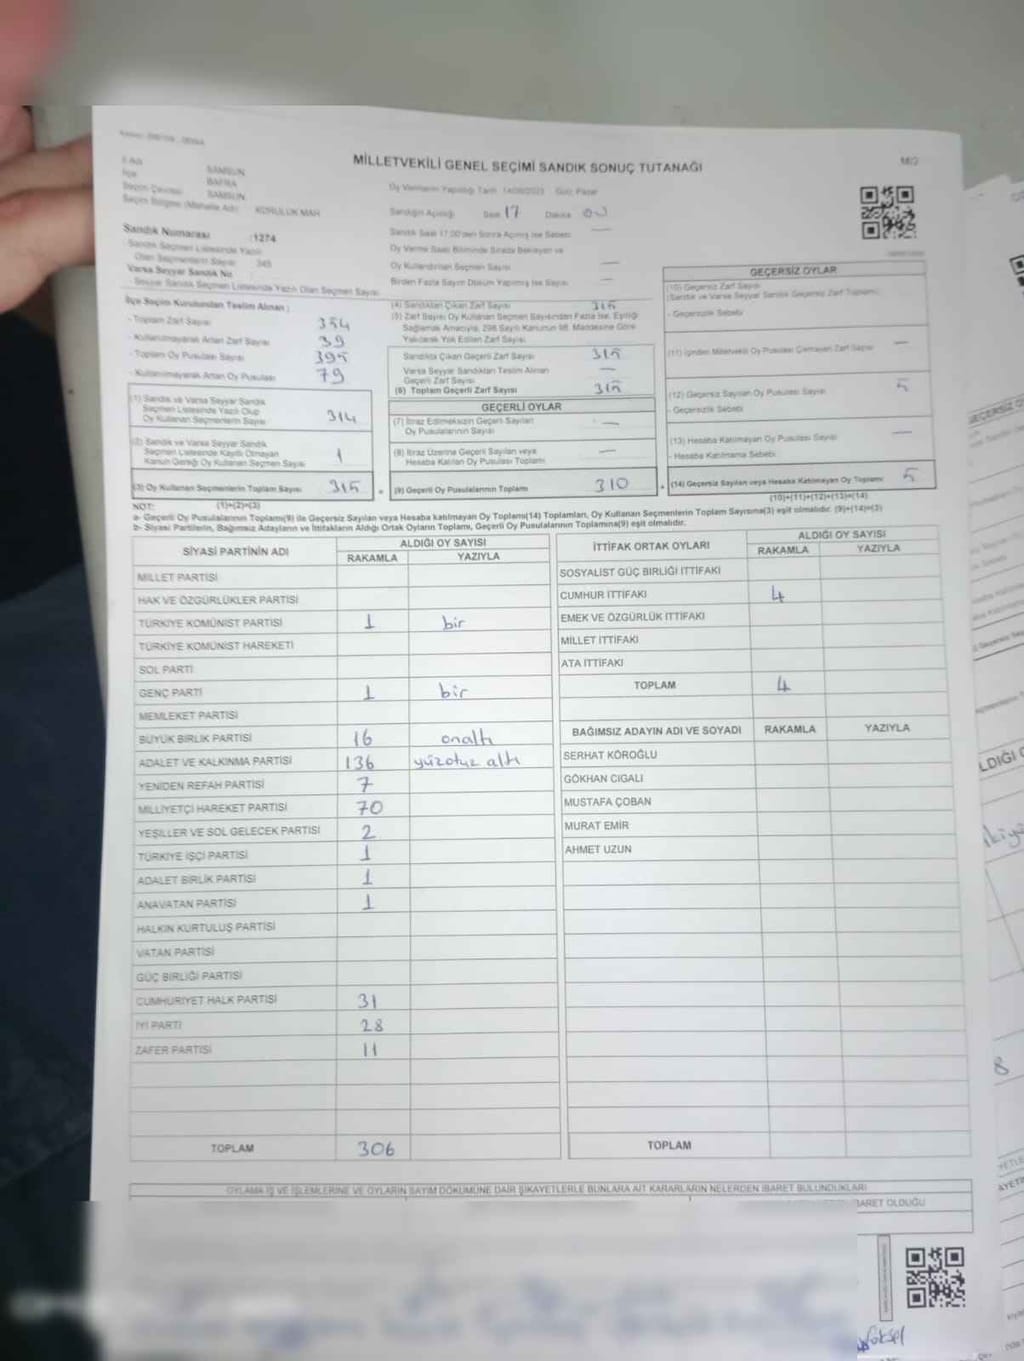 MİLLETVEKİLİ GENEL SEÇİMİ SANDIK SONUÇ TUTANAĞI
SAMSUN
BAFRA
SAMSUN
KORULUK MAH
Sandığın Açılığı Saat 17 Dakika 00
Sandık Numarası :1274
Sandık Seçmen Listesinde Yazılı
Olan Seçmenlerin Sayısı 345
Varsa Seyyar Sandık No
Seyyar Sandık Seçmen Listesinde Yazılı Olan Seçmen Sayısı
Sandık Saat 17.00'den Sonra Açılmış İse Sebebi —
Oy Verme Saati Bitiminde Sırada Bekleyen ve
Oy Kullandırılan Seçmen Sayısı —
Birden Fazla Sayım Döküm Yapılmış İse Sayısı —
İlçe Seçim Kurulundan Teslim Alınan ;
- Toplam Zarf Sayısı 354
- Kullanılmayarak Artan Zarf Sayısı 39
- Toplam Oy Pusulası Sayısı 395
- Kullanılmayarak Artan Oy Pusulası 79
(1) Sandık ve Varsa Seyyar Sandık
Seçmen Listesinde Yazılı Olup
Oy Kullanan Seçmenlerin Sayısı 314
(2) Sandık ve Varsa Seyyar Sandık
Seçmen Listesinde Kayıtlı Olmayan
Kanun Gereği Oy Kullanan Seçmen Sayısı 1
(3) Oy Kullanan Seçmenlerin Toplam Sayısı 315
(1)+(2)=(3)
(4) Sandıktan Çıkan Zarf Sayısı 315
(5) Zarf Sayısı Oy Kullanan Seçmen Sayısından Fazla İse, Eşitliği
Sağlamak Amacıyla, 298 Sayılı Kanunun 98. Maddesine Göre
Yakılarak Yok Edilen Zarf Sayısı
Sandıkta Çıkan Geçerli Zarf Sayısı 315
Varsa Seyyar Sandıktan Teslim Alınan
Geçerli Zarf Sayısı —
(6) Toplam Geçerli Zarf Sayısı 315
GEÇERLİ OYLAR
(7) İtiraz Edilmeksizin Geçerli Sayılan
Oy Pusulalarının Sayısı —
(8) İtiraz Üzerine Geçerli Sayılan veya
Hesaba Katılan Oy Pusulası Toplamı —
(9) Geçerli Oy Pusulalarının Toplamı 310
GEÇERSİZ OYLAR
(10) Geçersiz Zarf Sayısı
(Sandık ve Varsa Seyyar Sandık Geçersiz Zarf Toplamı)
- Geçersizlik Sebebi
(11) İçinden Milletvekili Oy Pusulası Çıkmayan Zarf Sayısı —
(12) Geçersiz Sayılan Oy Pusulası Sayısı 5
- Geçersizlik Sebebi
(13) Hesaba Katılmayan Oy Pusulası Sayısı —
- Hesaba Katılmama Sebebi
(14) Geçersiz Sayılan veya Hesaba Katılmayan Oy Toplamı 5
(10)+(11)+(12)+(13)=(14)
NOT:
a- Geçerli Oy Pusulalarının Toplamı(9) ile Geçersiz Sayılan veya Hesaba katılmayan Oy Toplamı(14) Toplamları, Oy Kullanan Seçmenlerin Toplam Sayısına(3) eşit olmalıdır. (9)+(14)=(3)
b- Siyasi Partilerin, Bağımsız Adayların ve İttifakların Aldığı Oy Ortak Oyların Toplamı, Geçerli Oy Pusulasının Toplamına(9) eşit olmalıdır.
SİYASİ PARTİNİN ADI ALDIĞI OY SAYISI
RAKAMLA YAZIYLA
MİLLET PARTİSİ
HAK VE ÖZGÜRLÜKLER PARTİSİ
TÜRKİYE KOMÜNİST PARTİSİ 1 bir
TÜRKİYE KOMÜNİST HAREKETİ
SOL PARTİ
GENÇ PARTİ 1 bir
MEMLEKET PARTİSİ
BÜYÜK BİRLİK PARTİSİ 16 onaltı
ADALET VE KALKINMA PARTİSİ 136 yüzotuz altı
YENİDEN REFAH PARTİSİ 7
MİLLİYETÇİ HAREKET PARTİSİ 70
YEŞİLLER VE SOL GELECEK PARTİSİ 2
TÜRKİYE İŞÇİ PARTİSİ 1
ADALET BİRLİK PARTİSİ 1
ANAVATAN PARTİSİ 1
HALKIN KURTULUŞ PARTİSİ
VATAN PARTİSİ
GÜÇ BİRLİĞİ PARTİSİ
CUMHURİYET HALK PARTİSİ 31
İYİ PARTİ 28
ZAFER PARTİSİ 11
TOPLAM 306
İTTİFAK ORTAK OYLARI ALDIĞI OY SAYISI
RAKAMLA YAZIYLA
SOSYALİST GÜÇ BİRLİĞİ İTTİFAKI
CUMHUR İTTİFAKI 4
EMEK VE ÖZGÜRLÜK İTTİFAKI
MİLLET İTTİFAKI
ATA İTTİFAKI
TOPLAM 4
BAĞIMSIZ ADAYIN ADI VE SOYADI RAKAMLA YAZIYLA
SERHAT KÖROĞLU
GÖKHAN CIGALI
MUSTAFA ÇOBAN
MURAT EMİR
AHMET UZUN
TOPLAM
OYLAMA İŞ VE İŞLEMLERİNE VE OYLARIN SAYIM DÖKÜMÜNE DAİR ŞİKAYETLERLE BUNLARA AİT KARARLARIN NELERDEN İBARET BULUNDUKLARI
İBARET OLDUĞU